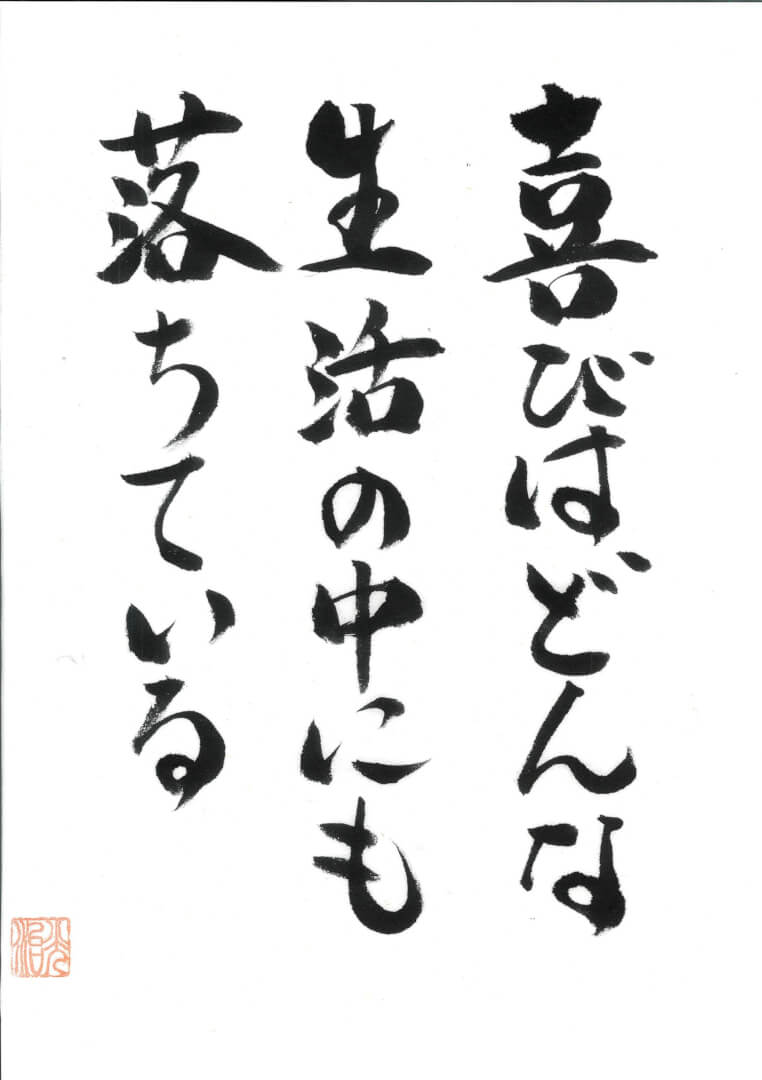 喜びはどんな
生活の中にも
落ちている